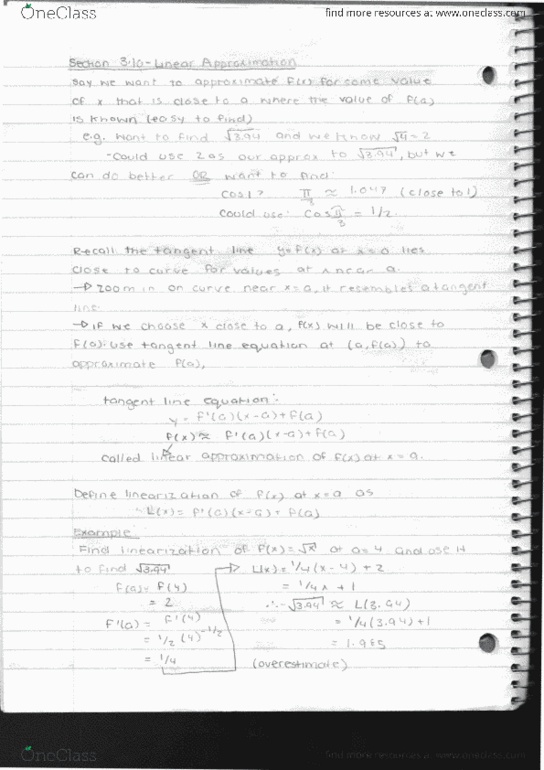 OneClass
find more resources at www.oneclass.com
Section 3.10 - Linear Approximation
Say we want to approximate f(x) for some value
of x that is close to a where the value of f(a)
is known (easy to find)
e.g. want to find √3.94 and we know √4 = 2
- Could use 2 as our approx to √3.94, but we
can do better OR want to find:
cos1? π/3 ≈ 1.047 (close to 1)
Could use: Cos π/3 = 1/2.
Recall the tangent line y=f(x) at x=a lies
close to curve for values at x near a.
→ zoom in on curve near x=a, it resembles a tangent
line.
→ if we choose x close to a, f(x) will be close to
f(a): use tangent line equation at (a, f(a)) to
approximate f(a),
tangent line equation:
y = f'(a)(x-a)+f(a)
f(x) ≈ f'(a)(x-a)+f(a)
called linear approximation of f(x) at x=a.
Define linearization of f(x) at x=a as
L(x) = f'(a)(x-a) + f(a)
Example:
Find linearization of f(x)=√x at a=4 and use it
to find √3.94
f(a) = f(4)
= 2
f'(a) = f'(4)
= 1/2 (4)^-1/2
= 1/4
→ L(x) = 1/4(x-4) + 2
= 1/4x + 1
∴ √3.94 ≈ L(3.94)
= 1/4(3.94)+1
= 1.985
(overestimate)
OneClass
find more resources at www.oneclass.com